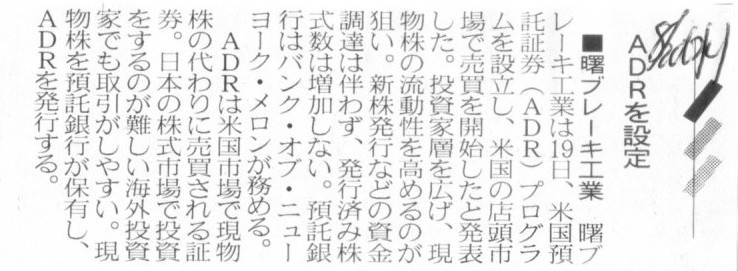 ADRを設定
■曙ブレーキ工業　曙ブ
レーキ工業は19日、米国預
託証券（ADR）プログラ
ムを設立し、米国の店頭市
場で売買を開始したと発表
した。投資家層を広げ、現
物株の流動性を高めるのが
狙い。新株発行などの資金
調達は伴わず、発行済み株
式数は増加しない。預託銀
行はバンク・オブ・ニュー
ヨーク・メロンが務める。
ADRは米国市場で現物
株の代わりに売買される証
券。日本の株式市場で投資
をするのが難しい海外投資
家でも取引がしやすい。現
物株を預託銀行が保有し、
ADRを発行する。